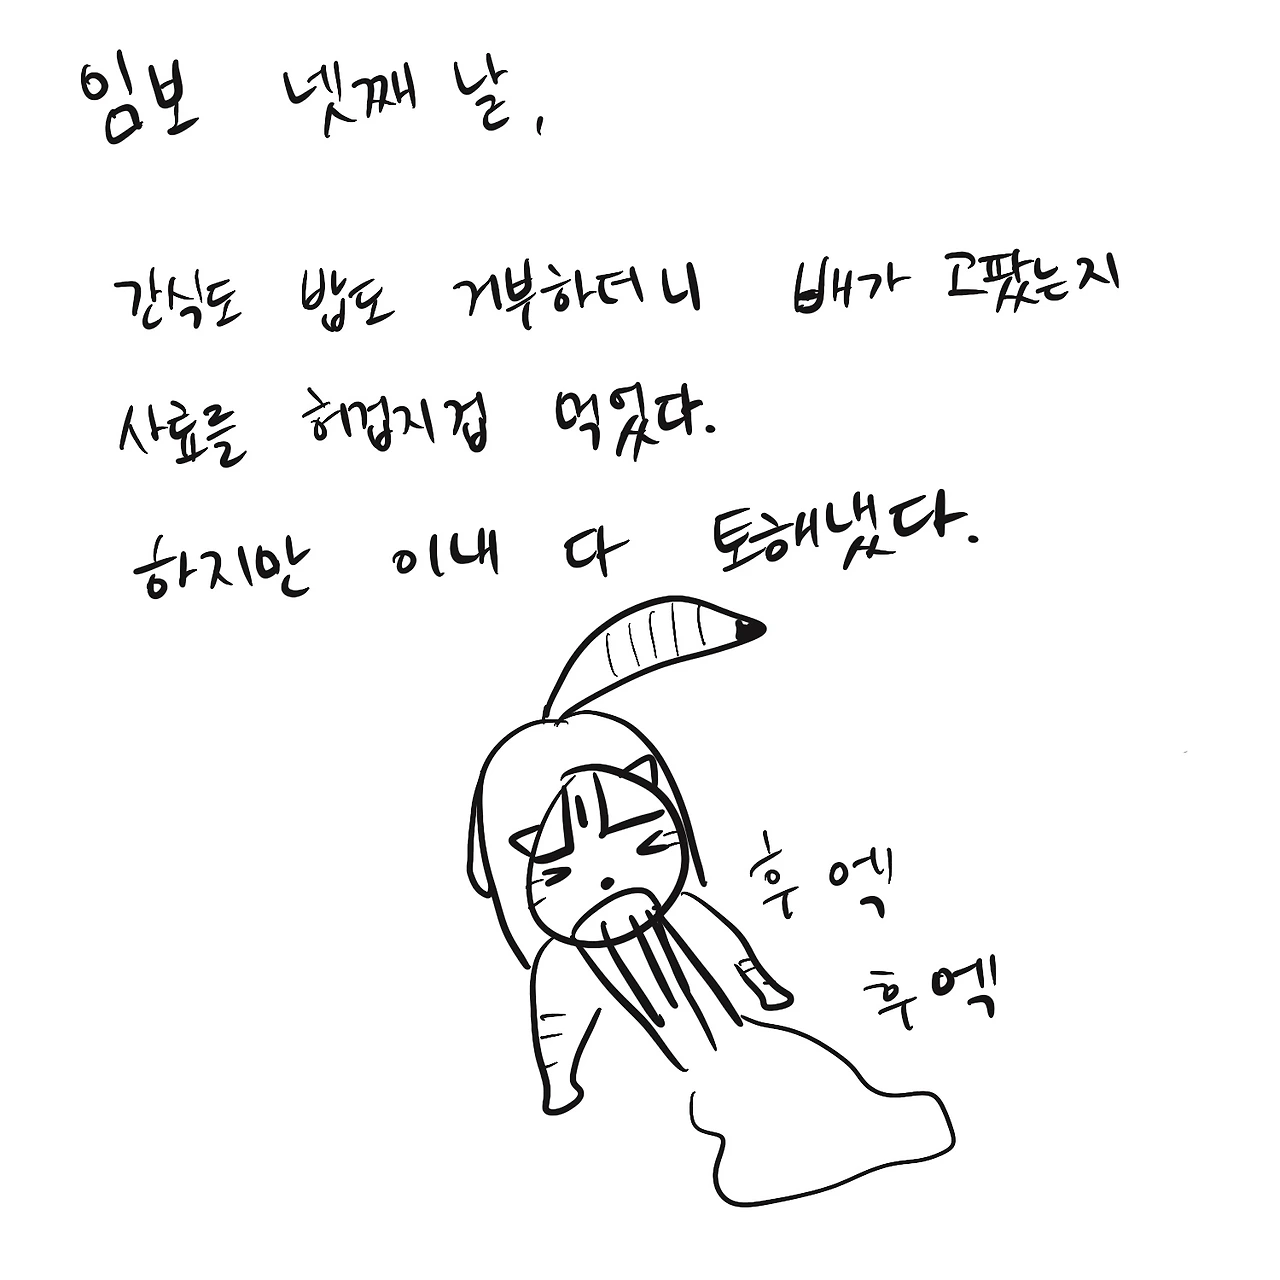 임보 넷째 날,
간식도 밥도 거부하더니 배가 고팠는지
사료를 허겁지겁 먹었다.
하지만 이내 다 토해냈다.
후엑
후엑